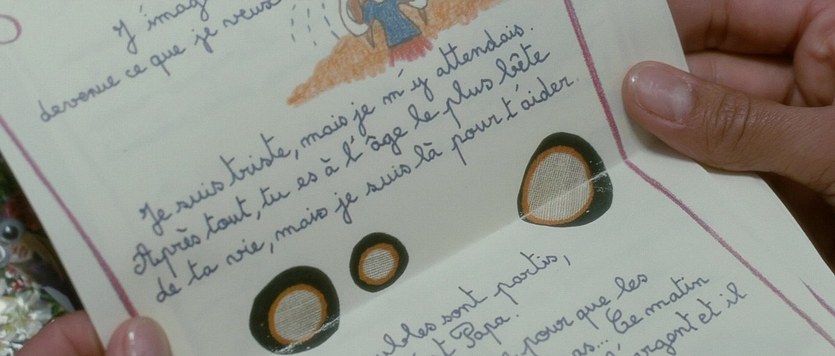 J'imag
devenue ce que je veux
Je suis triste, mais je m'y attendais.
Après tout, tu es à l'âge le plus bête
de ta vie, mais je suis là pour t'aider.
ubles sont partis,
t Papa.
pour que les
as... Ce matin
argent et il